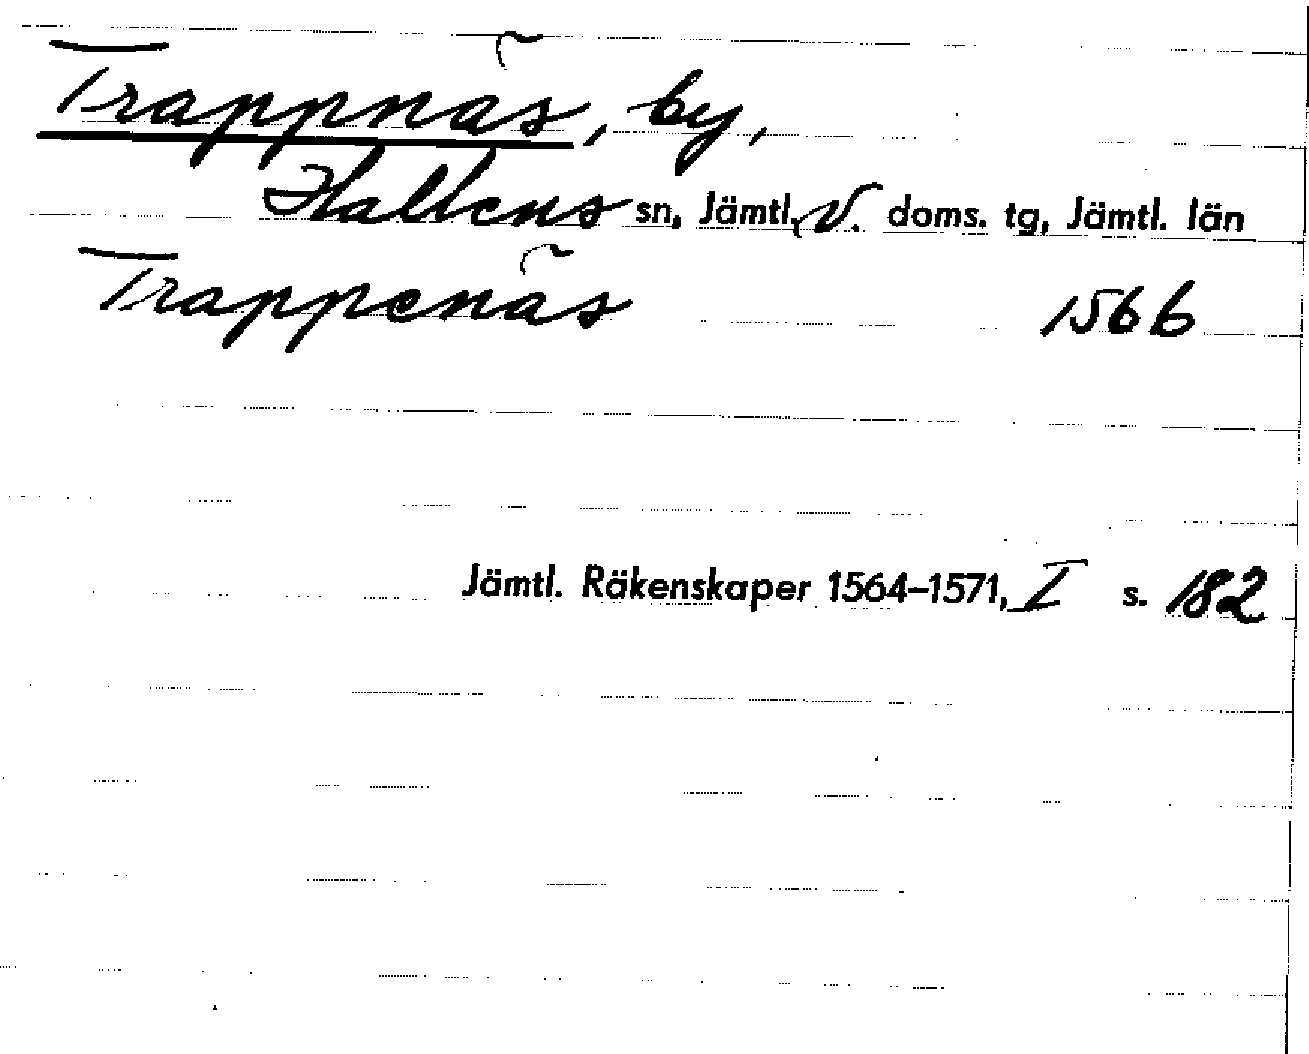 Trappnäs, by,
Hallens sn, Jämtl. V. doms. tg, Jämtl. län
Trappenäs 1566
Jämtl. Räkenskaper 1564–1571, I s. 182